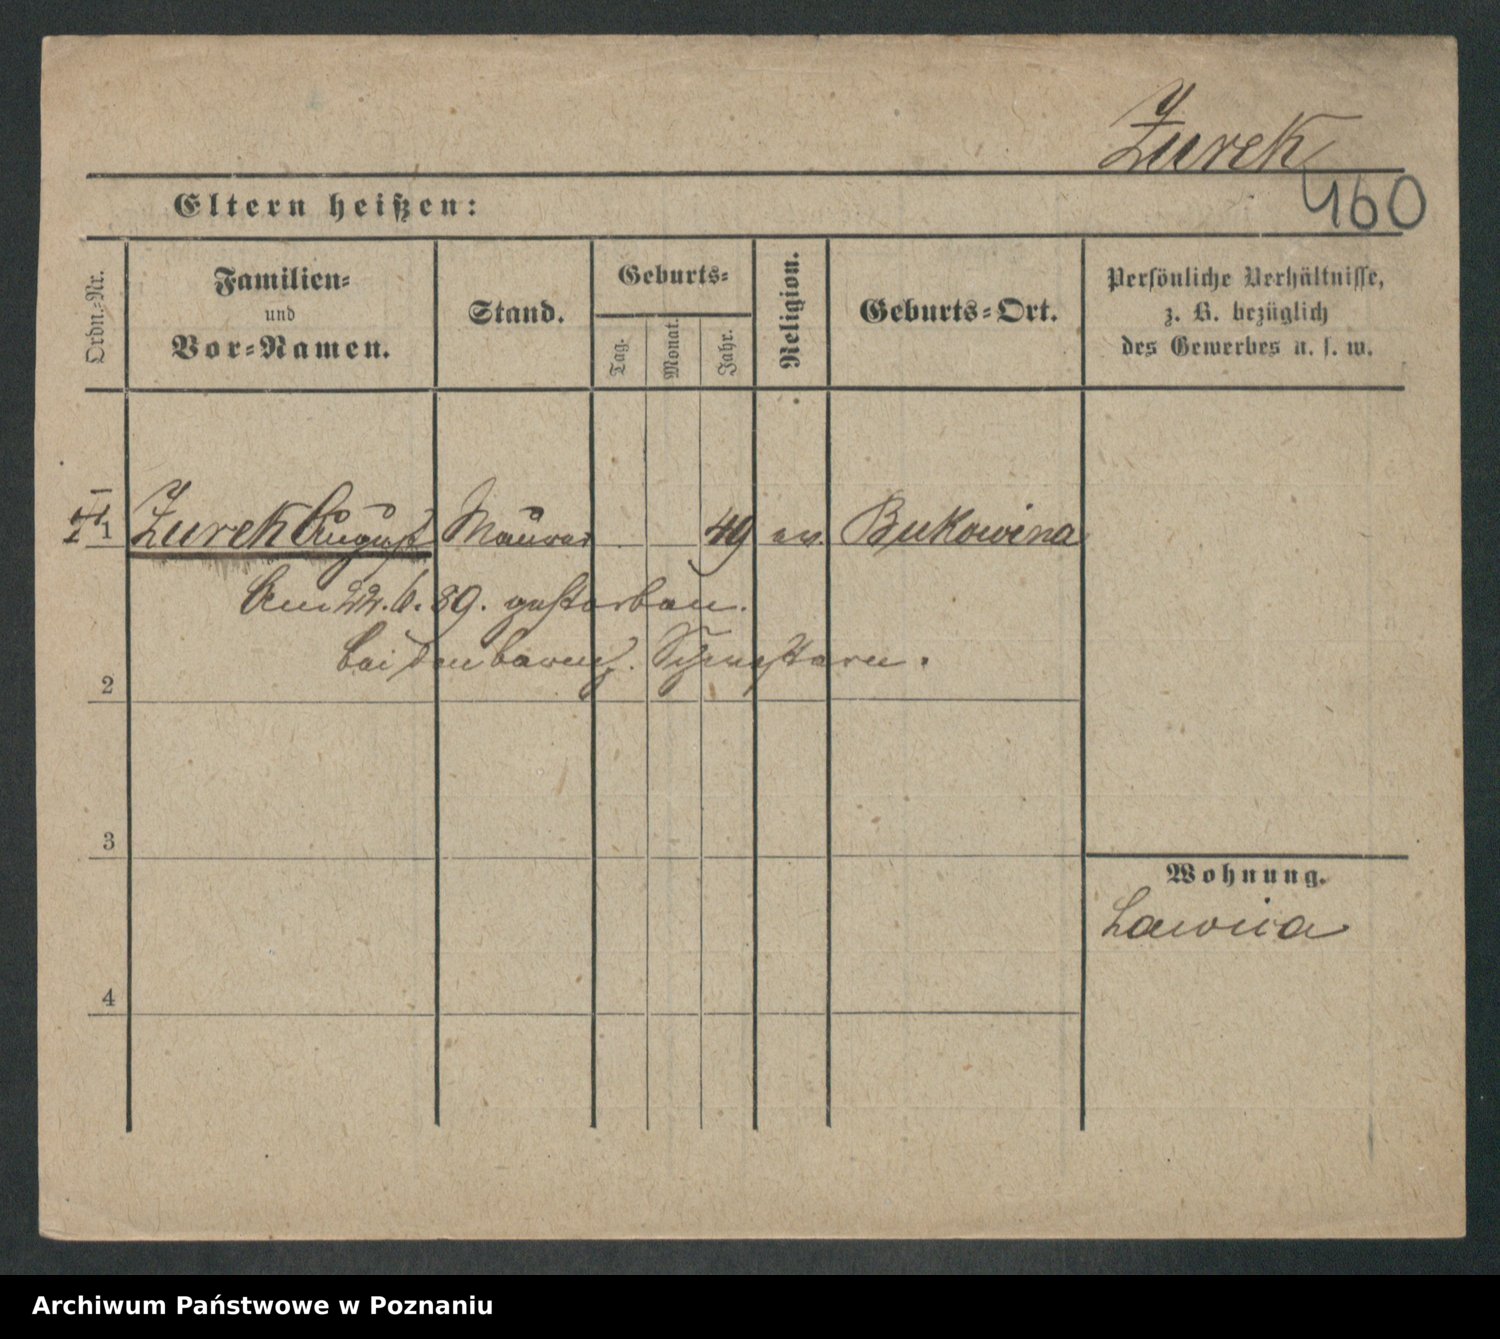 Zurek
160
Eltern heißen:
Ordn.-Nr.
Familien-
und
Vor-Namen.
Stand.
Geburts-
Tag.
Monat.
Jahr.
Religion.
Geburts-Ort.
Persönliche Verhältnisse,
z. B. bezüglich
des Gewerbes u. s. w.
1 Zurek August Maurer 49 ev. Bukowina
Am 22. 6. 89. gestorben.
bei den barmh. Schwestern.
2
3
Wohnung.
Lawica
4
Archiwum Państwowe w Poznaniu